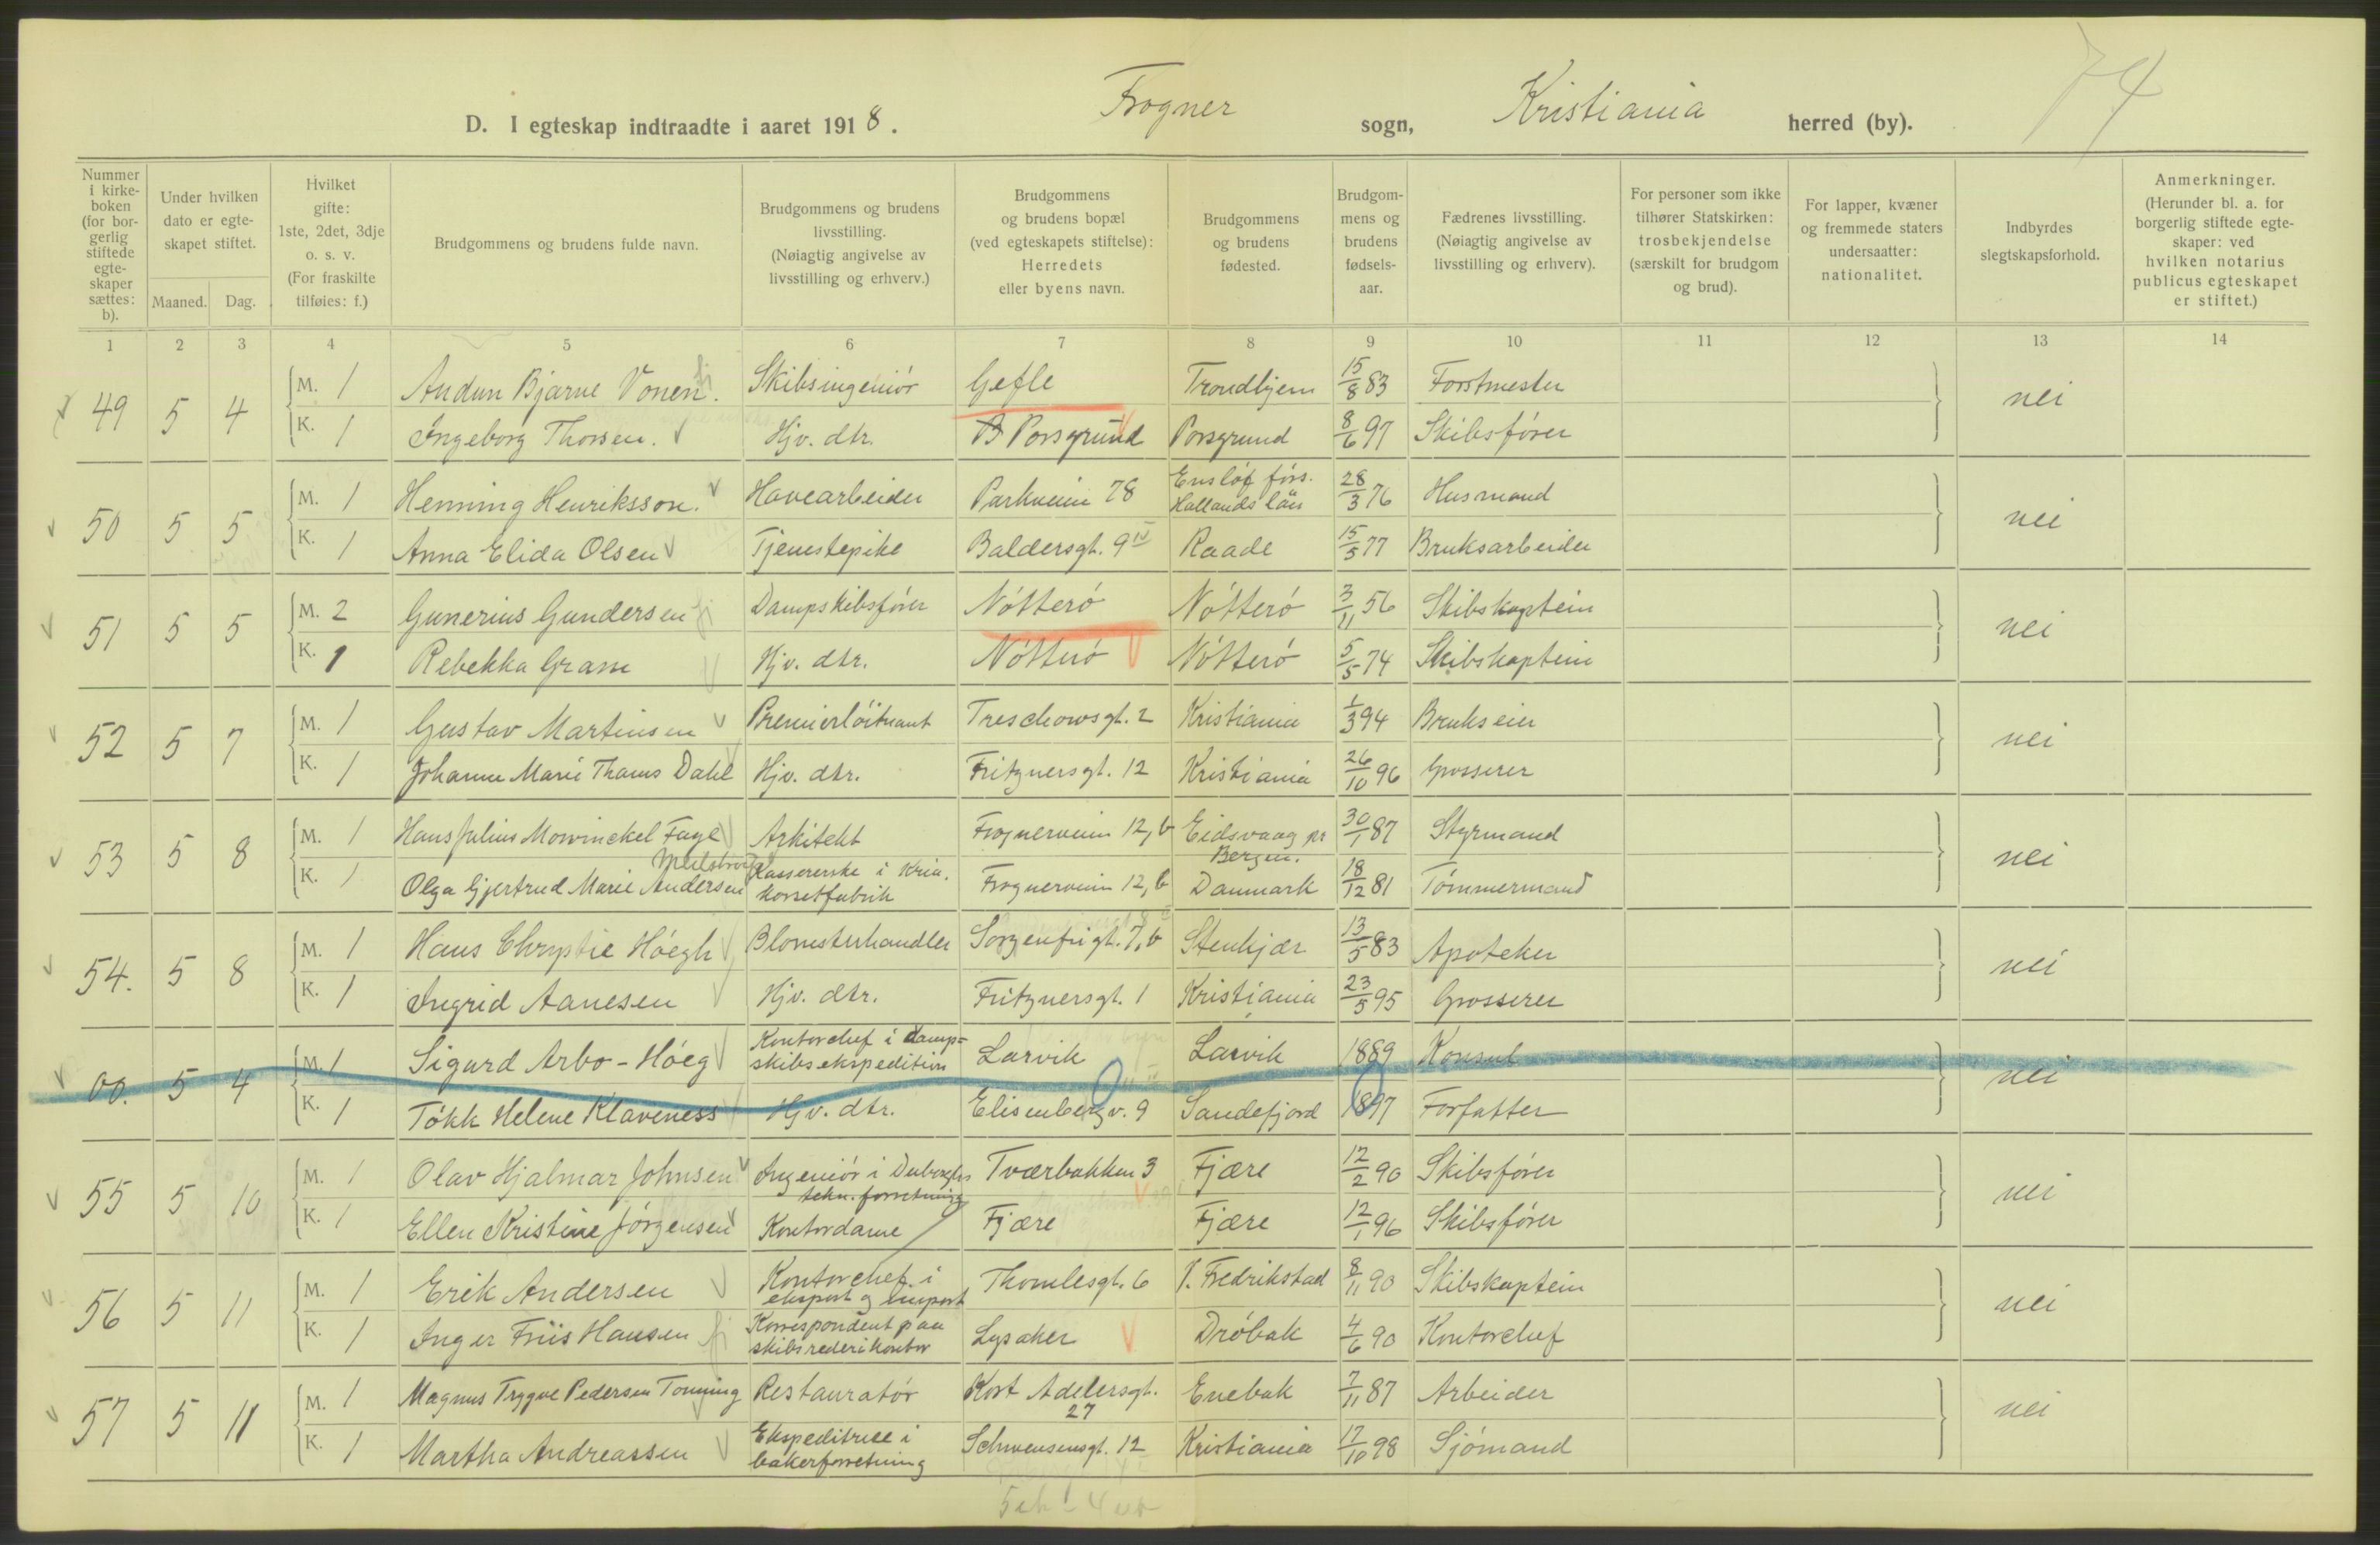 74
D. I egteskap indtraadte i aaret 1918. Frogner sogn, Kristiania herred (by).
Nummer i kirke-boken (for bor-gerlig stiftede egte-skaper sættes: b).
Under hvilken dato er egte-skapet stiftet.
Maaned. Dag.
Hvilket gifte: 1ste, 2det, 3dje o. s. v. (For fraskilte tilføies: f.)
Brudgommens og brudens fulde navn.
Brudgommens og brudens livsstilling. (Nøiagtig angivelse av livsstilling og erhverv.)
Brudgommens og brudens bopæl (ved egteskapets stiftelse): Herredets eller byens navn.
Brudgommens og brudens fødested.
Brudgom-mens og brudens fødsels-aar.
Fædrenes livsstilling. (Nøiagtig angivelse av livsstilling og erhverv).
For personer som ikke tilhører Statskirken: trosbekjendelse (særskilt for brudgom og brud).
For lapper, kvæner og fremmede staters undersaatter: nationalitet.
Indbyrdes slegtskapsforhold.
Anmerkninger. (Herunder bl. a. for borgerlig stiftede egte-skaper: ved hvilken notarius publicus egteskapet er stiftet.)
1 2 3 4 5 6 7 8 9 10 11 12 13 14
49 5 4 M. 1 Andun Bjarne Vonen. Skibsingeniör Gefle Trondhjem 15/8 83 Forstmester nei
K. 1 Ingeborg Thorsen. Hjv. dtr. Porsgrund Porsgrund 8/6 97 Skibsförer
50 5 5 M. 1 Henning Henriksson. Havearbeider Parkveien 78 Enslöf förs. Hallands län 28/3 76 Husmand nei
K. 1 Anna Elida Olsen Tjenestepike Baldersgt. 9 IV Raade 15/5 77 Bruksarbeider
51 5 5 M. 2 Gunerius Gundersen Dampskibsförer Nötterö Nötterö 3/11 56 Skibskaptein nei
K. 1 Rebekka Gram Hjv. dtr. Nötterö Nötterö 5/5 74 Skibskaptein
52 5 7 M. 1 Gustav Martinsen Premierlöitnant Treschowsgt. 2 Kristiania 1/3 94 Brukseier nei
K. 1 Johanne Marie Thams Dahl Hjv. dtr. Fritznersgt. 12 Kristiania 26/10 96 Grosserer
53 5 8 M. 1 Hans Julius Mowinckel Faye Arkitekt Frognerveien 12, b Eidsvaag pr. Bergen. 30/1 87 Styrmand nei
K. 1 Olga Gjertrud Marie Andersen Kassererske i Kria. korsetfabrik Frognerveien 12, b Danmark 18/12 81 Tömmermand
54. 5 8 M. 1 Hans Chrystie Höegh Blomsterhandler Sorgenfrigt. 7, b Stenkjær 13/5 83 Apoteker nei
K. 1 Ingrid Aanesen Hjv. dtr. Fritznersgt. 1 Kristiania 23/5 95 Grosserer
00. 5 4 M. 1 Sigurd Arbo-Höeg Kontorchef i damp-skibsekspedition Larvik Larvik 1889 Konsul nei
K. 1 Tökk Helene Klaveness Hjv. dtr. Elisenbergv. 9 Sandefjord 1897 Forfatter
55 5 10 M. 1 Olav Hjalmar Johnsen Ingeniör i tekn. forretning Tværbakken 3 Fjære 12/2 90 Skibsförer nei
K. 1 Ellen Kristine Jörgensen Kontordame Fjære Fjære 12/1 96 Skibsförer
56 5 11 M. 1 Erik Andersen Kontorchef i eksport og import Thomlesgt. 6 V. Fredrikstad 8/11 90 Skibskaptein nei
K. 1 Inger Friis Hansen Korrespondent paa skibsrederikontor Lysaker Dröbak 4/6 90 Kontorchef
57 5 11 M. 1 Magnus Trygve Pedersen Tonning Restauratör Kort Adelersgt. 27 Enebak 7/11 87 Arbeider nei
K. 1 Martha Andreassen Ekspeditrice i bakerforretning Schwensensgt. 12 Kristiania 17/10 98 Sjömand